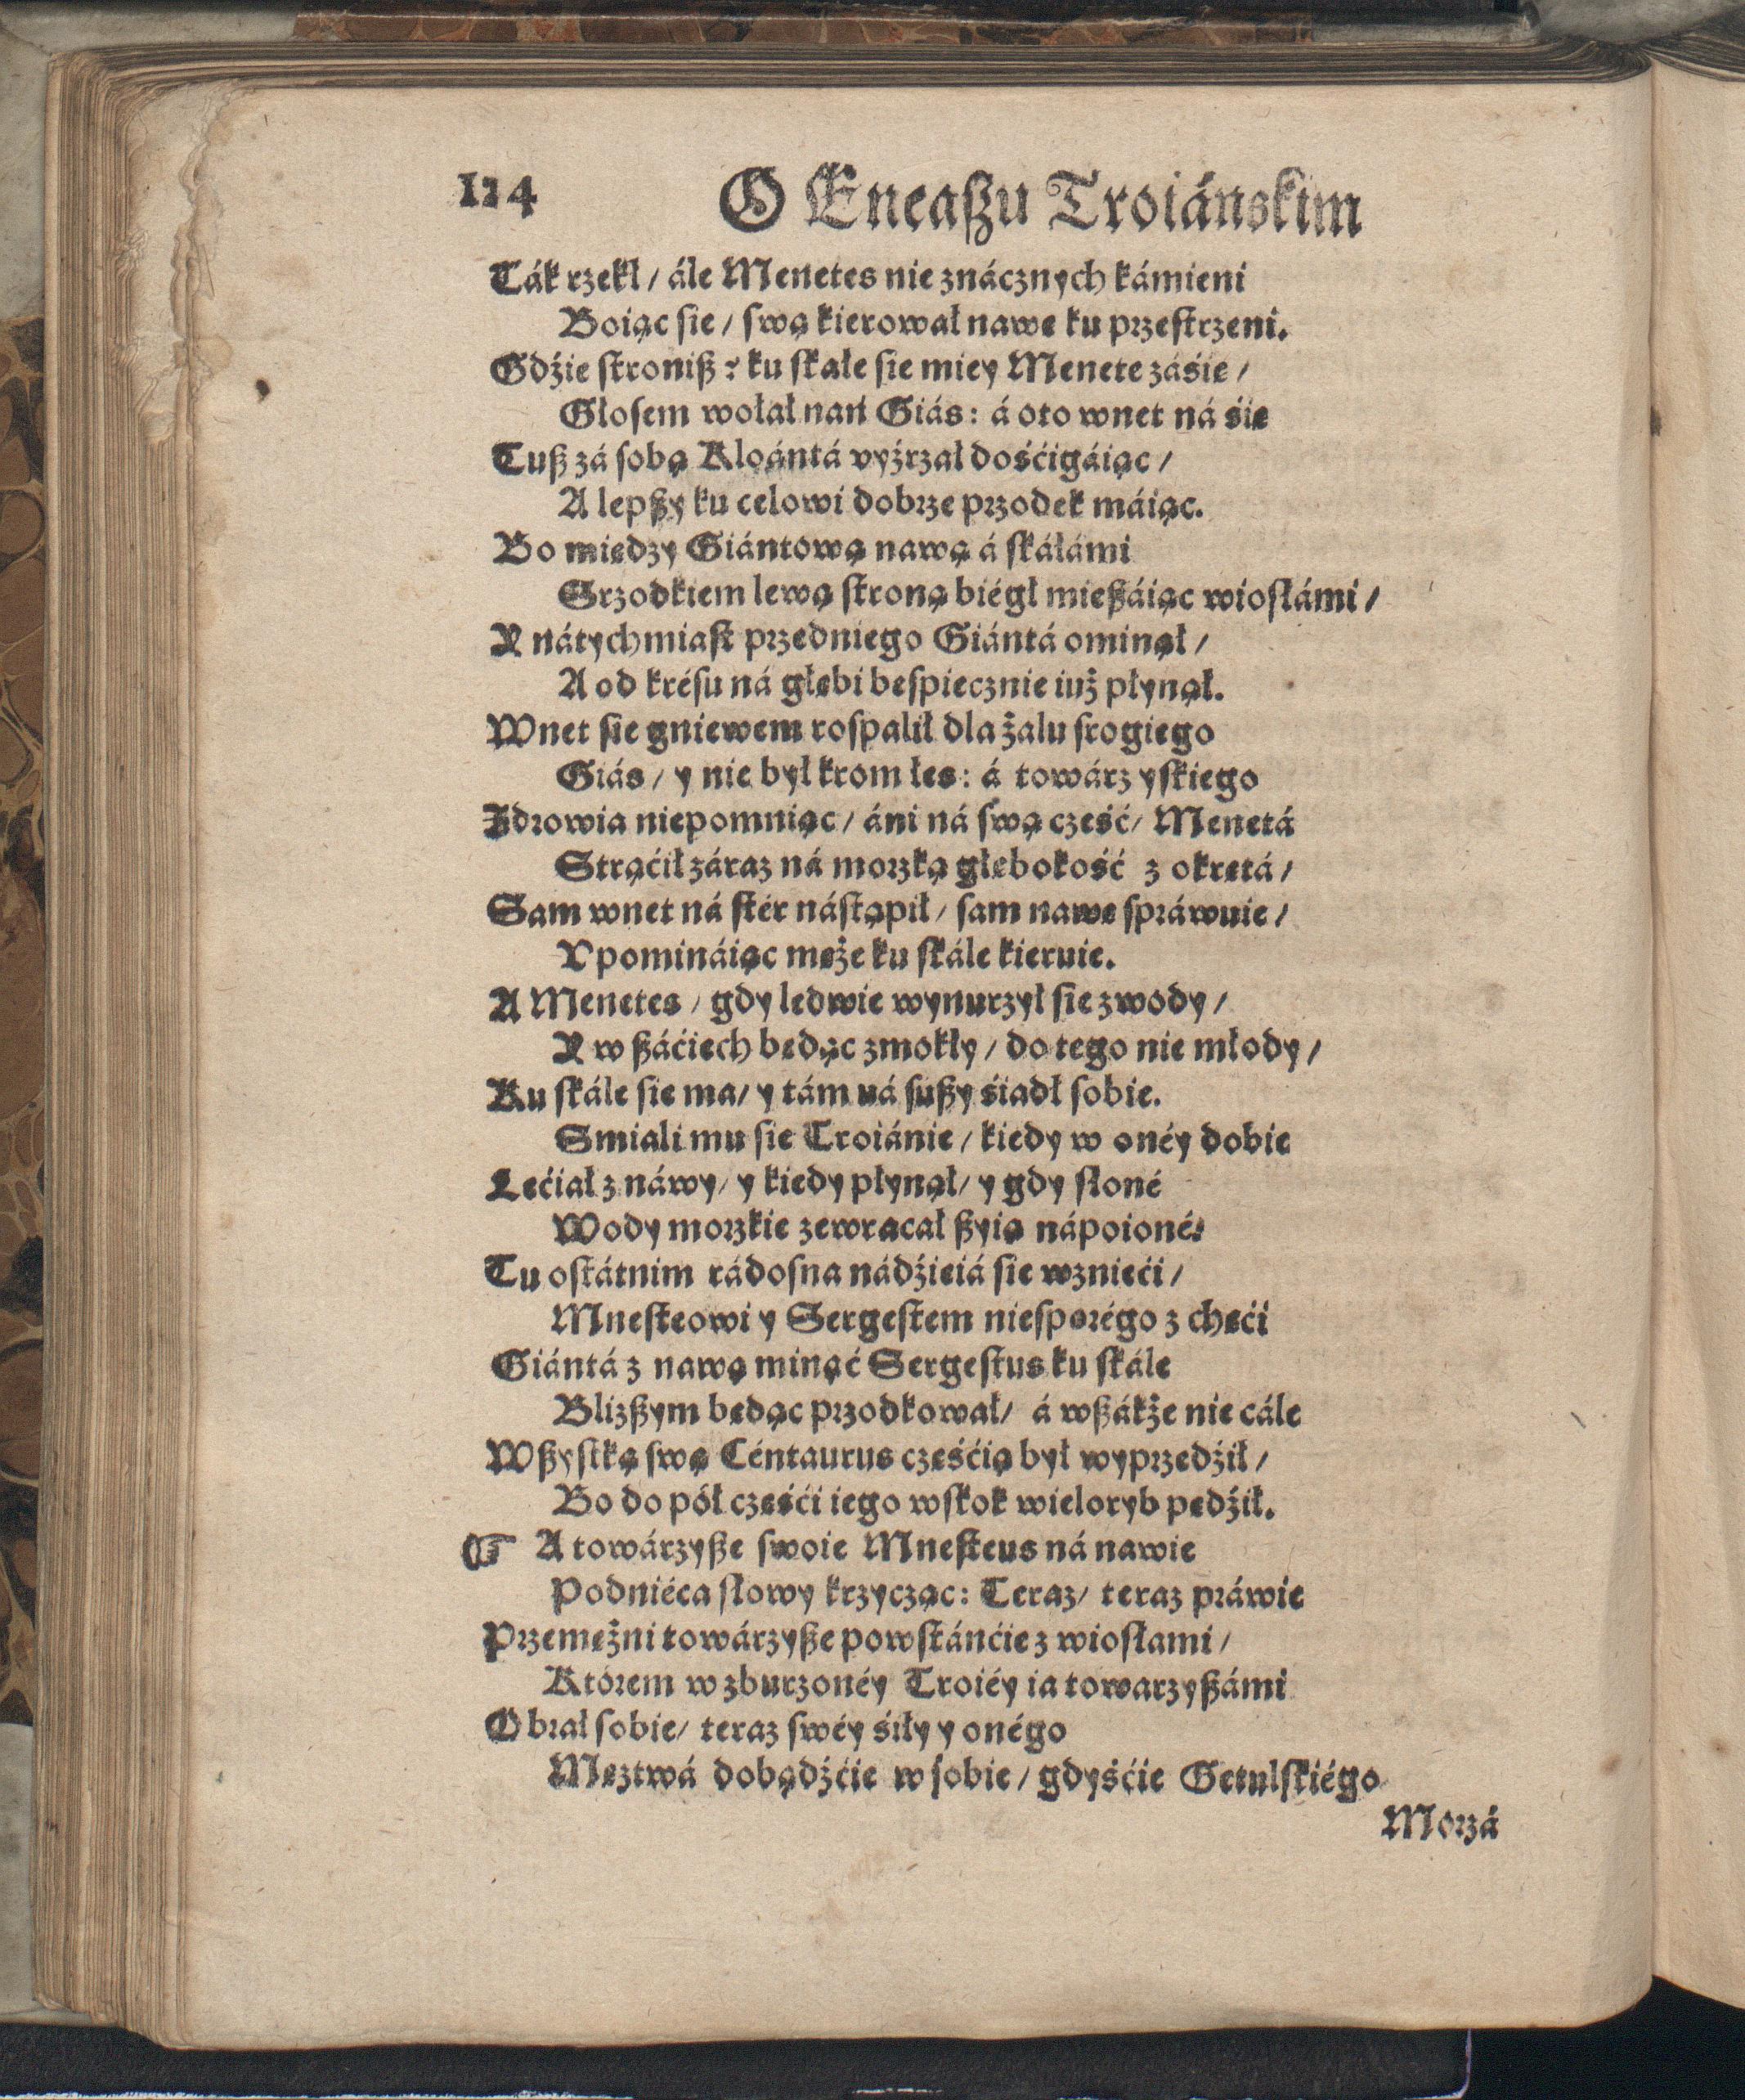 114 O Eneaſzu Troiánskim
Ták rzekł / ále Menetes nie znácznych kámieni
Boiąc ſie / ſwą kierował nawę ku przeſtrzeni.
Gdźie ſtroniſz? ku ſkale ſie miey Menete záśie /
Głoſem wołał nań Giás: á oto wnet ná śię
Tuſz zá ſobą Kloántá vyźrzał dośćigáiąc /
A lepſzy ku celowi dobrze przodek máiąc.
Bo miedzy Giántową nawą á ſkáłámi
Srzodkiem lewą ſtroną biégł mieſzáiąc wioſłámi /
Y nátychmiaſt przedniego Giántá ominął /
A od kréſu ná głębi beſpiecznie iuż płynął.
Wnet ſie gniewem roſpalił dla żalu ſrogiego
Giás / y nie był krom łez: á towárzyſkiego
Zdrowia niepomniąc / áni ná ſwą cześć / Menetá
Strąćił záraz ná morzką głębokość z okrętá /
Sam wnet ná ſtér náſtąpił / ſam nawę ſpráwuie /
Vpomináiąc męże ku ſkále kieruie.
A Menetes / gdy ledwie wynurzył ſie z wody /
Y w ſzáćiech będąc zmokły / do tego nie młody /
Ku ſkále ſie ma / y tám ná ſuſzy śiadł ſobie.
Smiali mu ſie Troiánie / kiedy w onéy dobie
Lećiał z náwy / y kiedy płynął / y gdy ſłoné
Wody morzkie zewracał ſzyią nápoioné.
Tu oſtátnim rádoſna nádźieiá ſie wznieći /
Mneſteowi y Sergeſtem nieſporégo z chęći
Giántá z nawą minąć Sergeſtus ku ſkále
Blizſzym będąc przodkował / á wſzákże nie cále
Wſzyſtką ſwą Céntaurus częśćią był wyprzedźił /
Bo do pół częśći iego wſkok wieloryb pędźił.
☞ A towárzyſze ſwoie Mneſteus ná nawie
Podniéca ſłowy krzycząc: Teraz / teraz práwie
Przemężni towárzyſze powſtánćie z wioſłami /
Którem w zburzonéy Troiéy ia towarzyſzámi
Obrał ſobie / teraz ſwéy śiły y onégo
Męztwá dobądźćie w ſobie / gdyśćie Getulſkiégo
Morzá